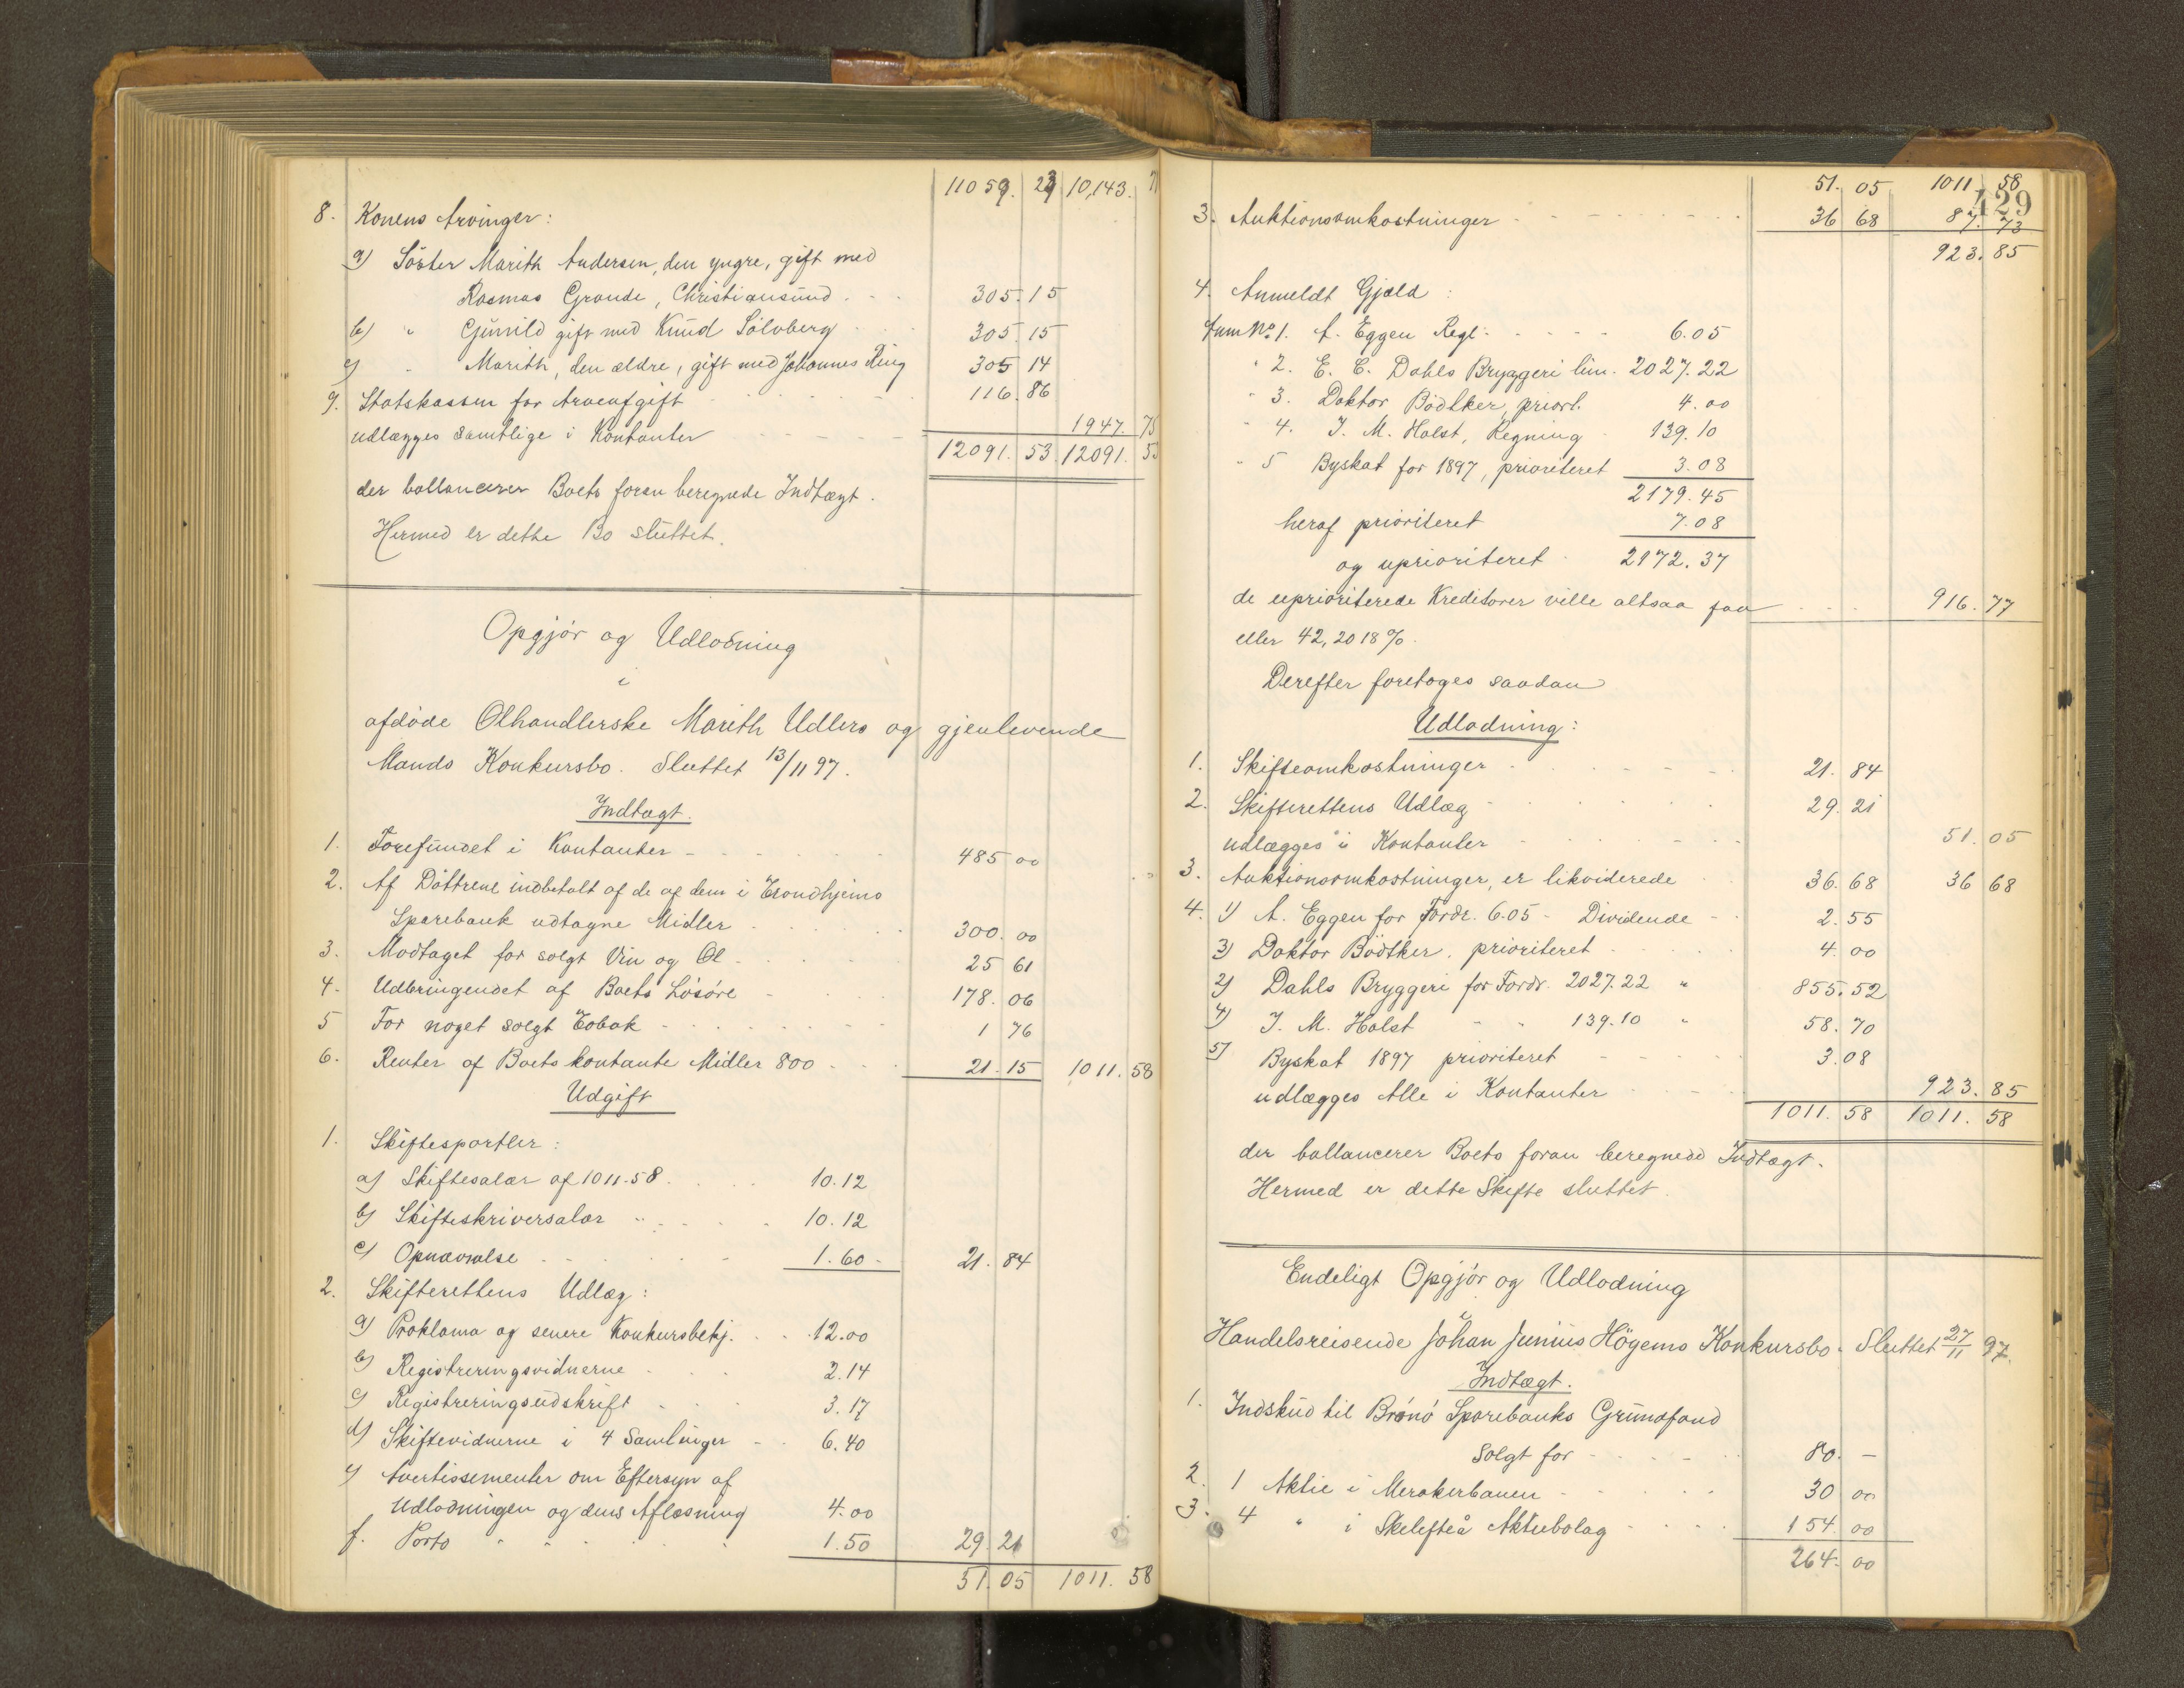 11059. 23 10,143.
8. Konens Arvinger:
a) Söster Marith Andersen, den yngre, gift med
Rasmus Grande, Christiansund . . 305. 15
b) " Gunild gift med Knud Sölvberg 305. 15
c) " Marith, den ældre, gift med Johannes Ring 305 14
9. Statskassen for Arveafgift 116. 86
udlægges samtlige i Kontanter 1947. 75
12091. 53 12091. 53
der ballancerer Boets foran beregnede Indtægt.
Hermed er dette Bo sluttet.
Opgjör og Udlodning
i
afdöde Ølhandlerske Marith Udlers og gjenlevende
Mands Konkursbo. Sluttet 13/11 97.
Indtægt.
1. Forefundet i Kontanter - 485 00
2. Af Döttrene indbetalt af de af dem i Trondhjems
Sparebank udtagne Midler 300. 00
3. Modtaget for solgt Vin og Øl - 25 61
4. Udbringendet af Boets Lösöre - 178. 06
5 For noget solgt Tobak - 1 76
6. Renter af Boets kontante Midler 800 - 21. 15 1011. 58
Udgift
1. Skiftesportler:
a) Skiftesalær af 1011.58 . 10.12
b) Skifteskriversalær 10.12
c) Opnævnelse 1.60 - 21. 84
2. Skifterettens Udlæg:
a) Proklama og senere Konkursbekj. 12.00
b) Registreringsvidnerne 2.14
c) Registreringsudskrift 3.17
d) Skiftevidnerne i 4 Samlinger 6.40
e) Avertissementer om Eftersyn af
Udlodningen og dens Aflæsning 4.00
f. Porto 1.50 29. 21
51. 05 1011. 58
51. 05 1011. 58
429
3. Auktionsomkostninger 36 68 87. 73
923. 85
4. Anmeldt Gjæld:
Anm No 1. A. Eggen Regl. 6.05
" 2. E. C. Dahls Bryggeri lim. 2027.22
" 3. Doktor Bödtker, priort. 4.00
" 4. J. M. Holst, Regning 139.10
" 5 Byskat for 1897, prioriteret 3.08
2179.45
heraf prioriteret 7.08
og uprioriteret 2172.37
de uprioriterede Kreditorer ville altsaa faa 916. 77
eller 42,2018 %.
Derefter foretoges saadan
Udlodning:
1. Skifteomkostninger 21. 84
2. Skifterettens Udlæg 29. 21
udlægges i Kontanter 51. 05
3. Auktionsomkostninger, er likviderede 36. 68 36 68
4. 1) A. Eggen for Fordr. 6.05 - Dividende - 2. 55
3) Doktor Bödtker, prioriteret 4. 00
2) Dahls Bryggeri for Fordr. 2027.22 " 855. 52
4) J. M. Holst " " 139.10 " 58. 70
5) Byskat 1897 prioriteret 3. 08
udlægges Alle i Kontanter 923. 85
1011. 58 1011. 58
der ballancerer Boets foran beregnede Indtægt.
Hermed er dette Skifte sluttet.
Endeligt Opgjör og Udlodning
i
Handelsreisende Johan Junius Högems Konkursbo. Sluttet 27/11 97.
Indtægt.
1. Indskud til Brönö Sparebanks Grundfond
solgt for 80. -
2. 1 Aktie i Merakerbanen 30 00
3. 4 " i Skelefteå Aktiebolag 154. 00
264. 00